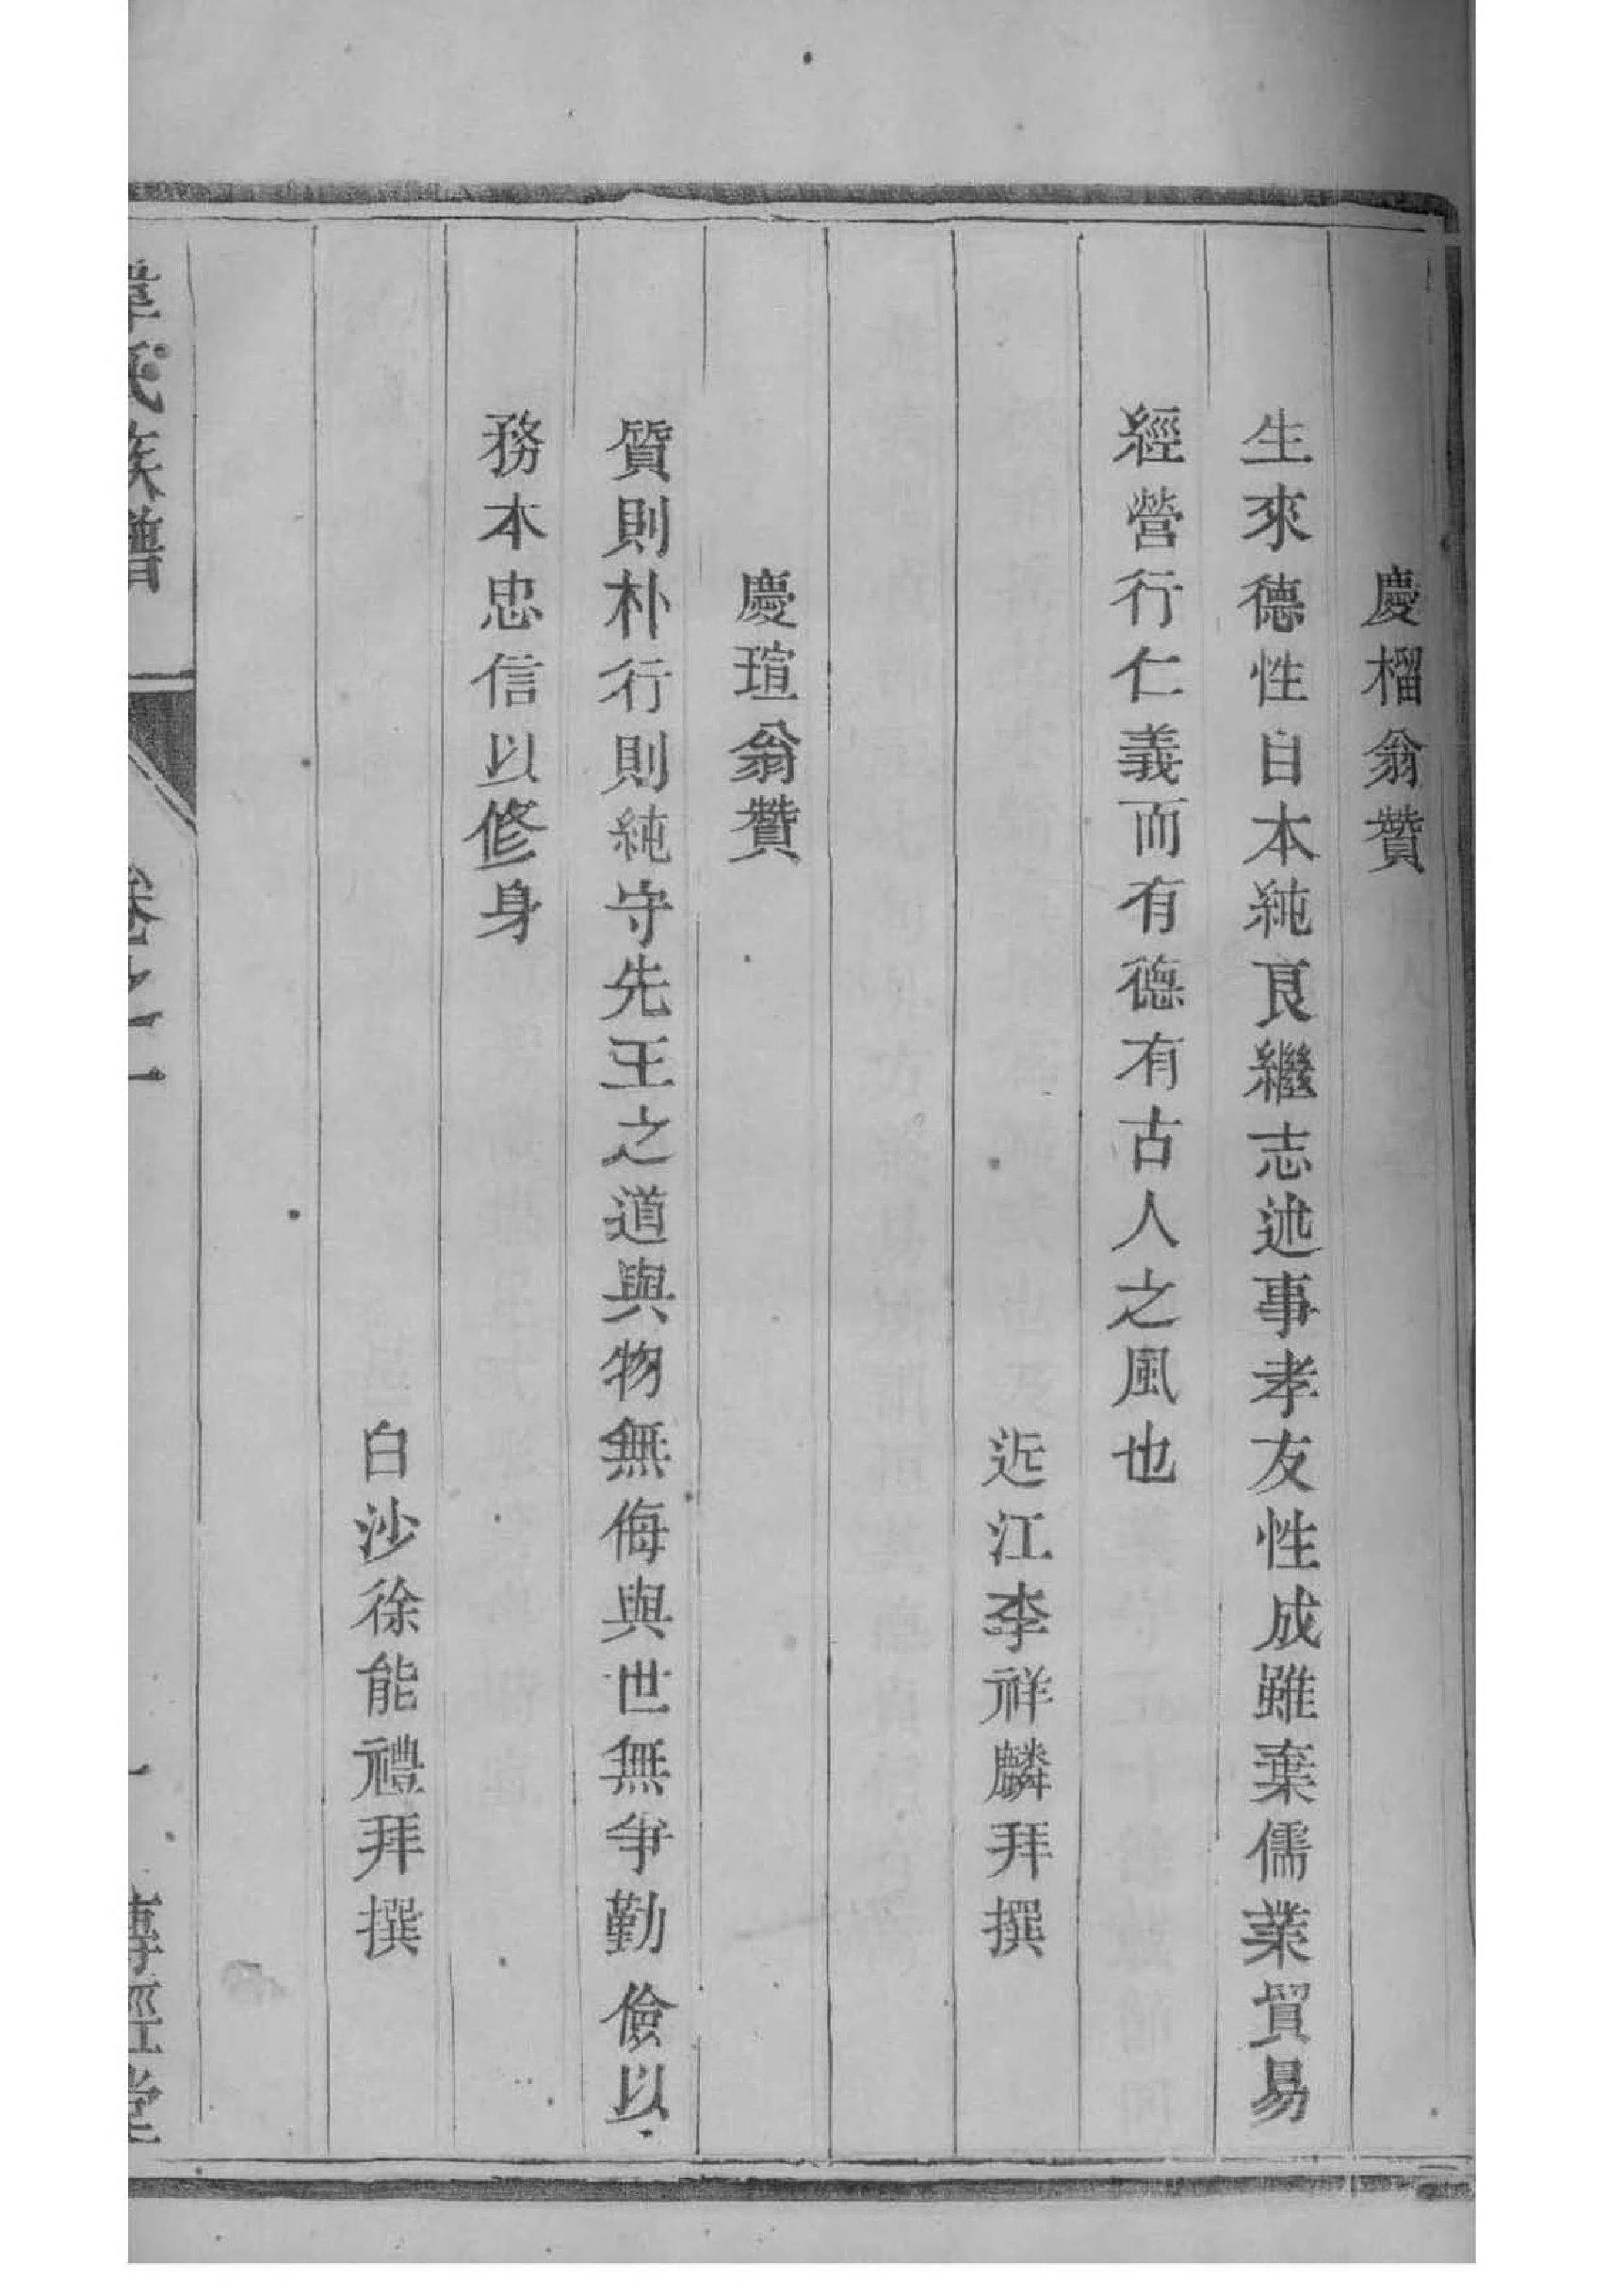 慶榴翁贊
生來德性自本純良繼志述事孝友性成雖棄儒業貿易
經營行仁義而有德有古人之風也
近江李祥麟拜撰
慶瑄翁贊
質則朴行則純守先王之道與物無侮與世無爭勤儉以
務本忠信以修身
白沙徐能禮拜撰
韋氏族譜 卷之一 一 傳經堂